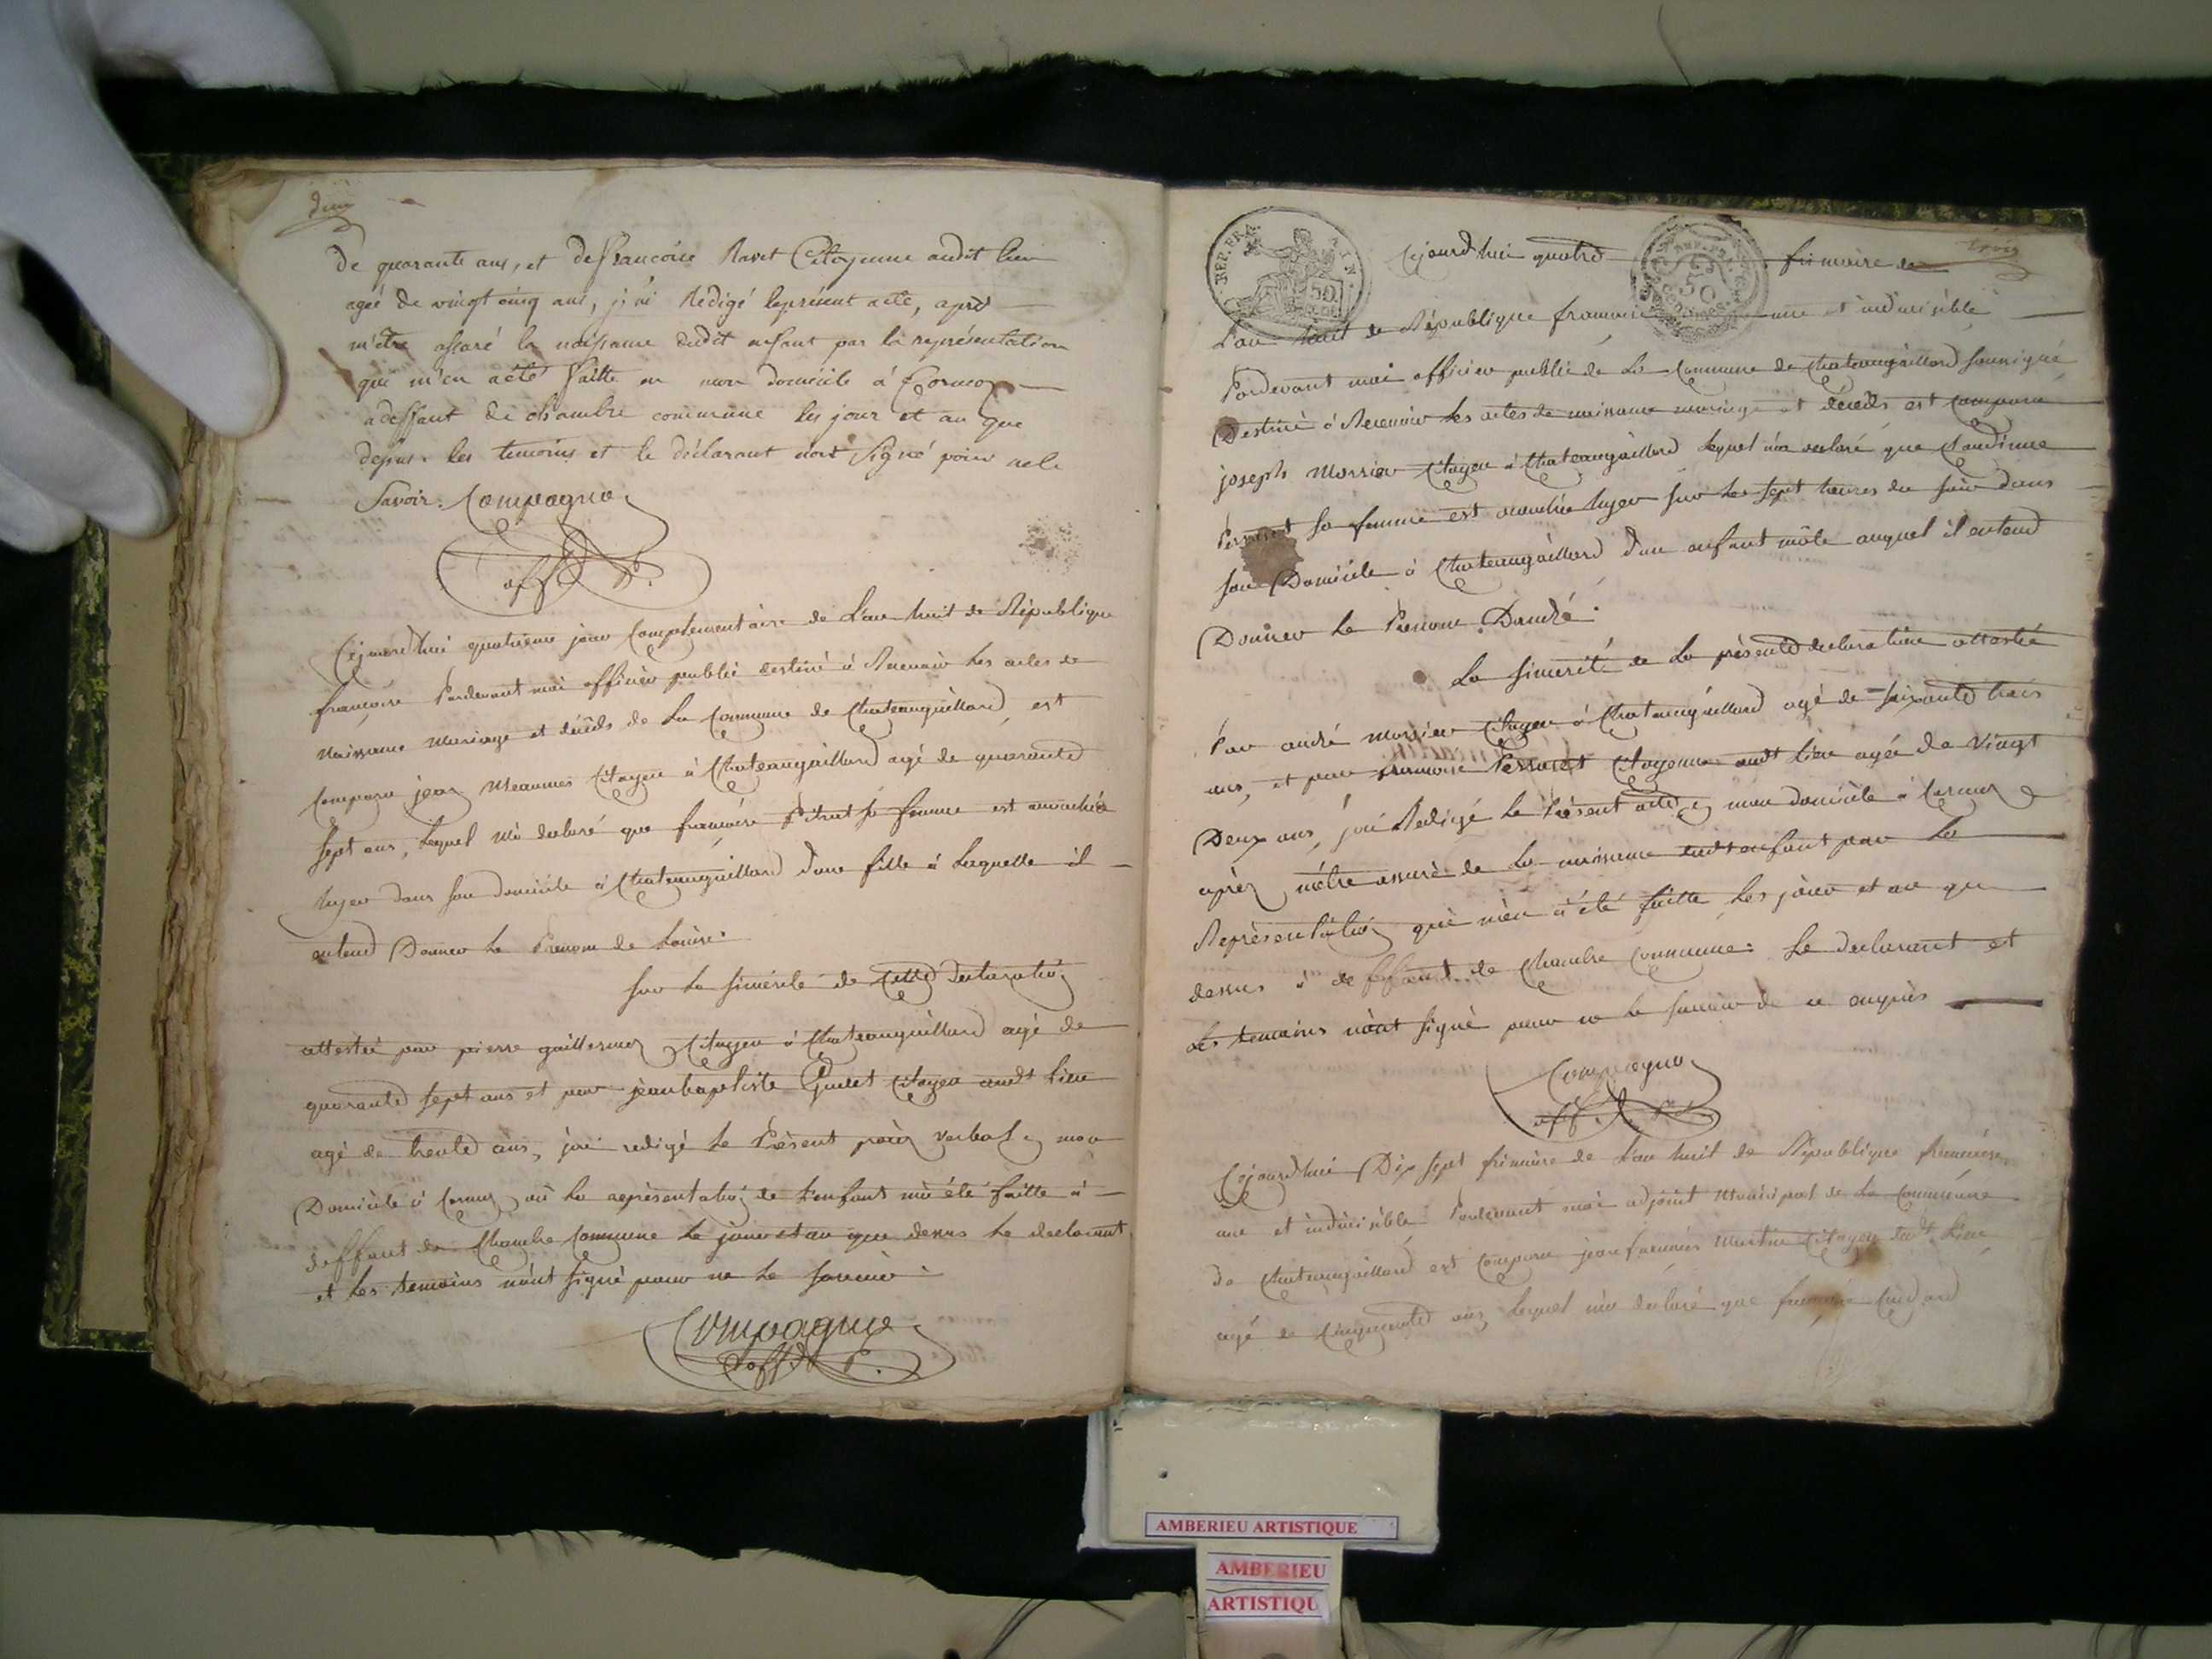 deux
de quarante ans, et de francoise Ravet Citoyenne audit lieu
ageé de vingt cinq ans, j'ai Redigé le présent acte, après
m'être assuré la naissance dudit enfant par la représentation
qui m'en a été faitte en mon domicile à Cormoz
a deffaut de chambre commune les jour et an que
dessus. les temoins et le déclarant n'ont signé pour ne le
savoir. Compagno
off. P.
Cejourd'hui quatrieme jour Complementaire de L'an huit de République
françoise Pardevant moi officier public destiné à Recevoir les actes de
Naissance Mariage et décéds de la Commune de Chateaugaillard, est
Comparu jean Meaunies Citoyen à Chateaugaillard agé de quarante
sept ans, Lequel m'a declaré que françoise Pitrat sa femme est accouchée
hyer dans son domicile à Chateaugaillard d'une fille à laquelle il
entend Donner le Prenom de Louise.
sur la sincérité de cette declaration
attestée par pierre guillermoz Citoyen à Chateaugaillard agé de
quarante sept ans et par jean baptiste Citoyen audt lieu
agé de trente ans, j'ai redigé le Présent procès verbal en mon
Domicile à Cormoz où la représentation de l'enfant m'a été faitte à
deffaut de Chambre Commune le jour et an que dessus le declarant
et les temoins n'ont signé pour ne le savoir.
Compagno
off. P.
trois
Cejourd'hui quatre frimaire de
REP. FRA. AIN. 50
L'an huit de République françoise une et indivisible
Pardevant moi officier public de la Commune de Chateaugaillard soussigné
Destiné à Recevoir les actes de naissance mariage et décéds est Comparu
joseph Morrier Citoyen à Chateaugaillard lequel m'a declaré que Claudinne
Perrinet sa femme est accouchée hyer sur les sept heures du soir dans
son Domicile à Chateaugaillard d'un enfant mâle auquel il entend
Donner le Prenom D'andré.
La sincérité de la présente declaration attestée
Par andré Morrier Citoyen à Chateaugaillard agé de soixante trois
ans, et par Citoyenne audt lieu agée de vingt
Deux ans, j'ai Redigé le Présent acte en mon domicile à Cormoz
après m'être assuré de la naissance dudt enfant par la
Représentation qui m'en a été faitte, les jour et an que
dessus à deffaut de Chambre Commune. Le declarant et
les temoins n'ont signé pour ne le savoir de ce enquis
Compagno
off. P.
Cejourd'hui Dix sept frimaire de l'an huit de République françoise
une et indivisible Pardevant moi adjoint Municipal de la Commune
de Chateaugaillard est Comparu jean francois Martin Citoyen dudt lieu
agé de Cinquante ans lequel m'a declaré que françoise
AMBERIEU ARTISTIQUE
AMBERIEU
ARTISTIQU